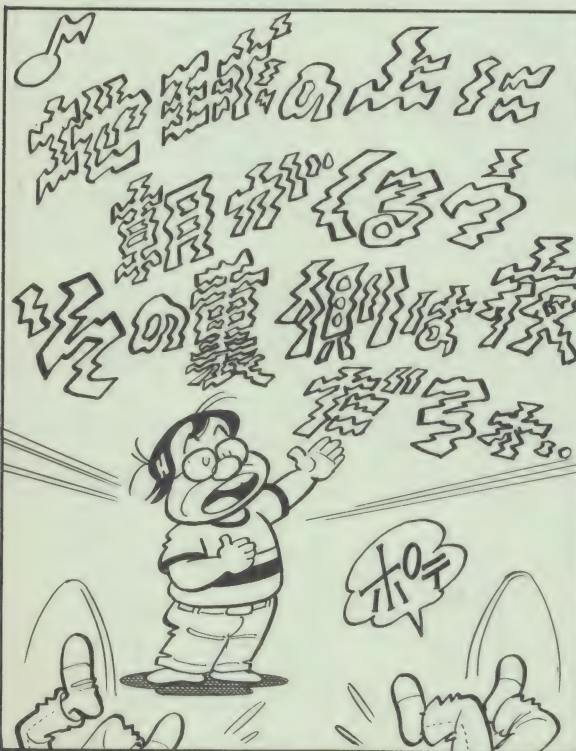 地球の上に
朝がくるう
その裏側は夜
だろう。
ポテ